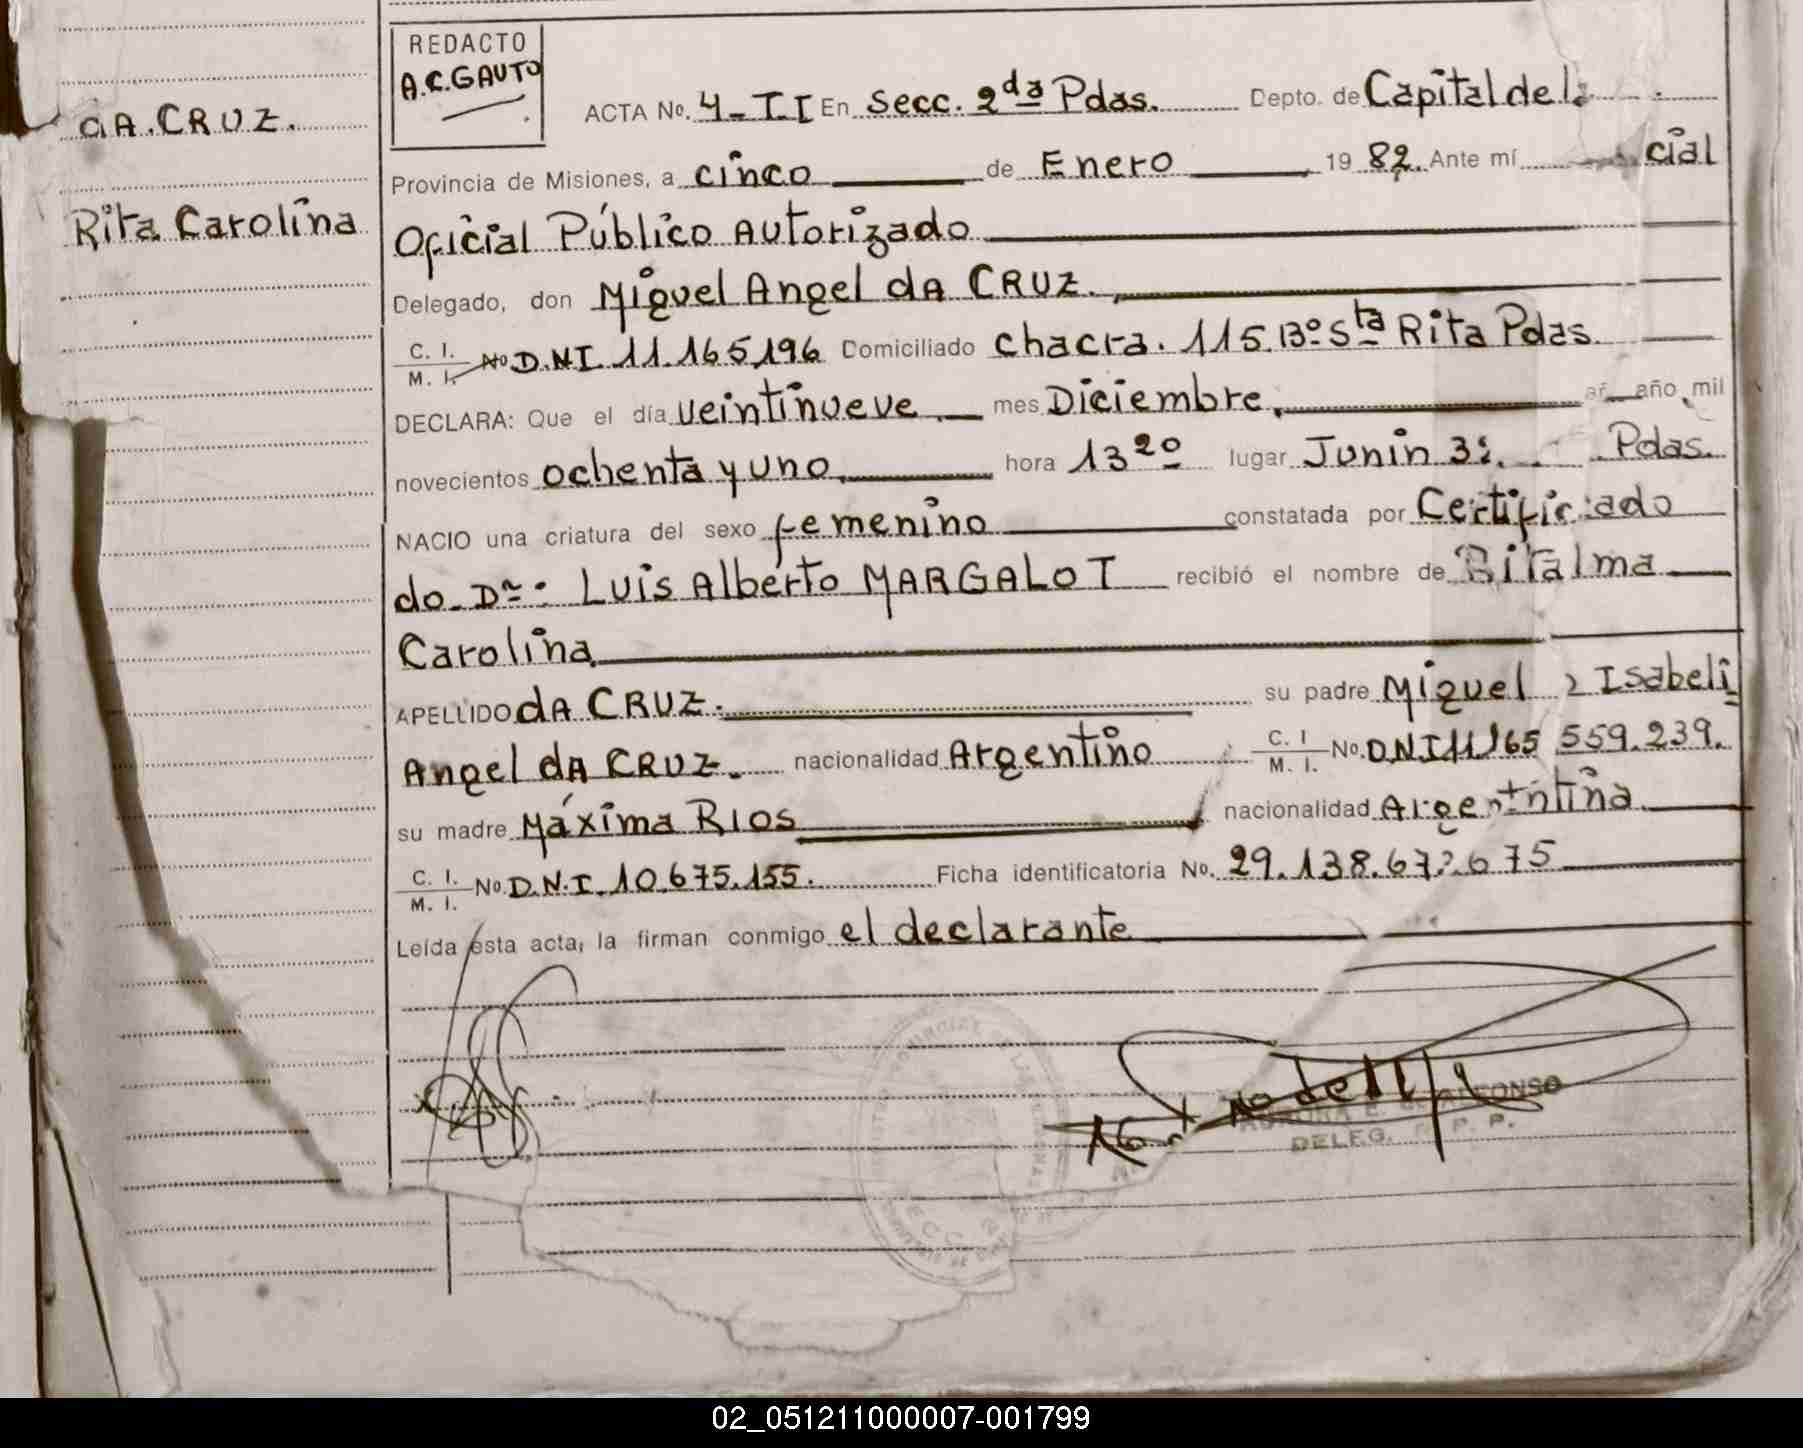 REDACTO
A.C.GAUTO
dA.CRUZ.
Rita Carolina
ACTA No. 4-II En Secc. 2da Pdas. Depto. de Capital de
Provincia de Misiones, a cinco de Enero 1982. Ante mí cial
Oficial Público Autorizado
Delegado, don Miguel Angel dA CRUZ.
C. I. M. I. No D.N.I. 11.165,196 Domiciliado chacra. 115.Bº Sta Rita Pdas.
DECLARA: Que el día veintinueve mes Diciembre, año mil
novecientos ochenta y uno hora 13 20 lugar Junin Pdas.
NACIO una criatura del sexo femenino constatada por Certific ado
do Dr: Luis Alberto MARGALOT recibió el nombre de
Carolina
APELLIDO dA CRUZ. su padre Miguel Isabeli
Angel dA CRUZ. nacionalidad Argentino C. I M. I. No. D.N.I 11165 559.239.
su madre Máxima RIOS nacionalidad Argen ntina
C. I. M. I. No. D.N.I. 10.675.155. Ficha identificatoria No. 29.138.67 675
Leída ésta acta, la firman conmigo el declarante
DELEG. P. P.
02_051211000007-001799